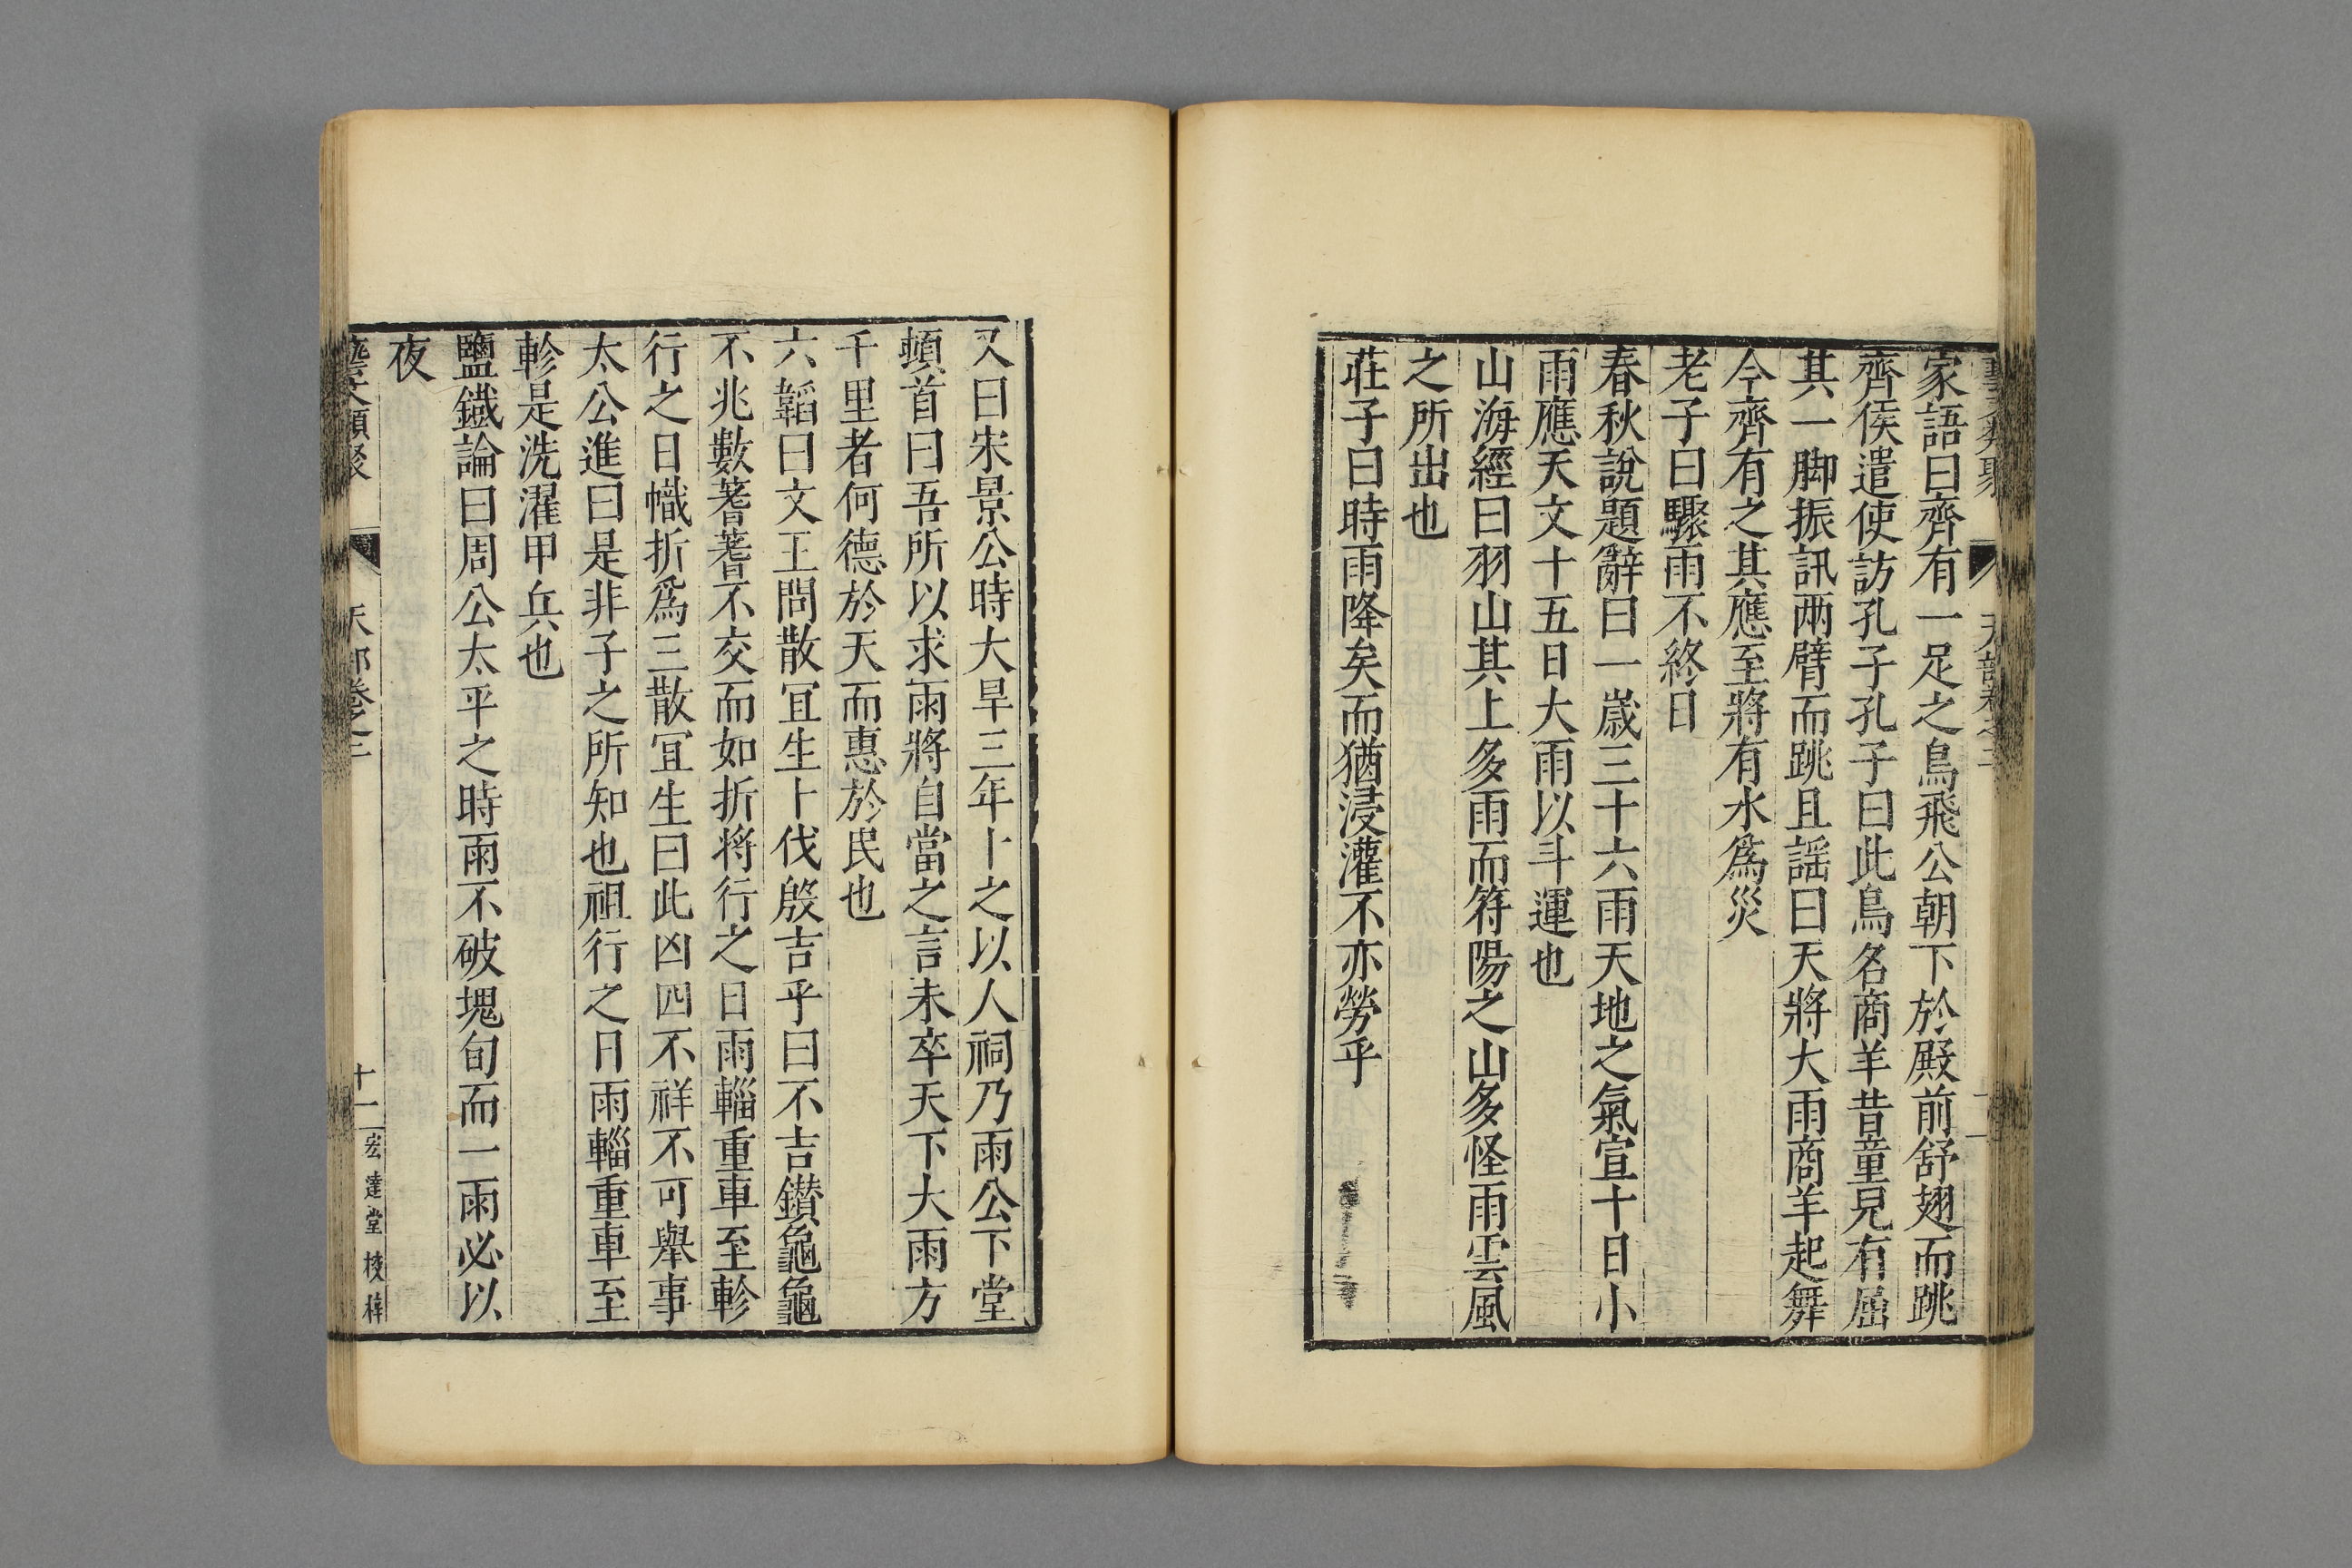 家語曰齊有一足之鳥飛公朝下於殿前舒翅而跳
齊侯遣使訪孔子孔子曰此鳥名商羊昔童兒有屈
其一脚振訊兩臂而跳且謠曰天將大雨商羊起舞
今齊有之其應至將有水爲災
老子曰驟雨不終日
春秋說題辭曰一歲三十六雨天地之氣宣十日小
雨應天文十五日大雨以斗運也
山海經曰羽山其上多雨而符陽之山多怪雨雲風
之所出也
莊子曰時雨降矣而猶浸灌不亦勞乎
又曰宋景公時大旱三年卜之以人祠乃雨公下堂
頓首曰吾所以求雨將自當之言未卒天下大雨方
千里者何德於天而惠於民也
六韜曰文王問散宜生卜伐殷吉乎曰不吉鑚龜龜
不兆數蓍蓍不交而如折将行之日雨輜重車至軫
行之日幟折爲三散宜生曰此凶四不祥不可舉事
太公進曰是非子之所知也祖行之日雨輜重車至
軫是洗濯甲兵也
鹽鐵論曰周公太平之時雨不破塊旬而一雨必以
夜
藝文類聚 天部卷之二 十一 宏達堂校梓